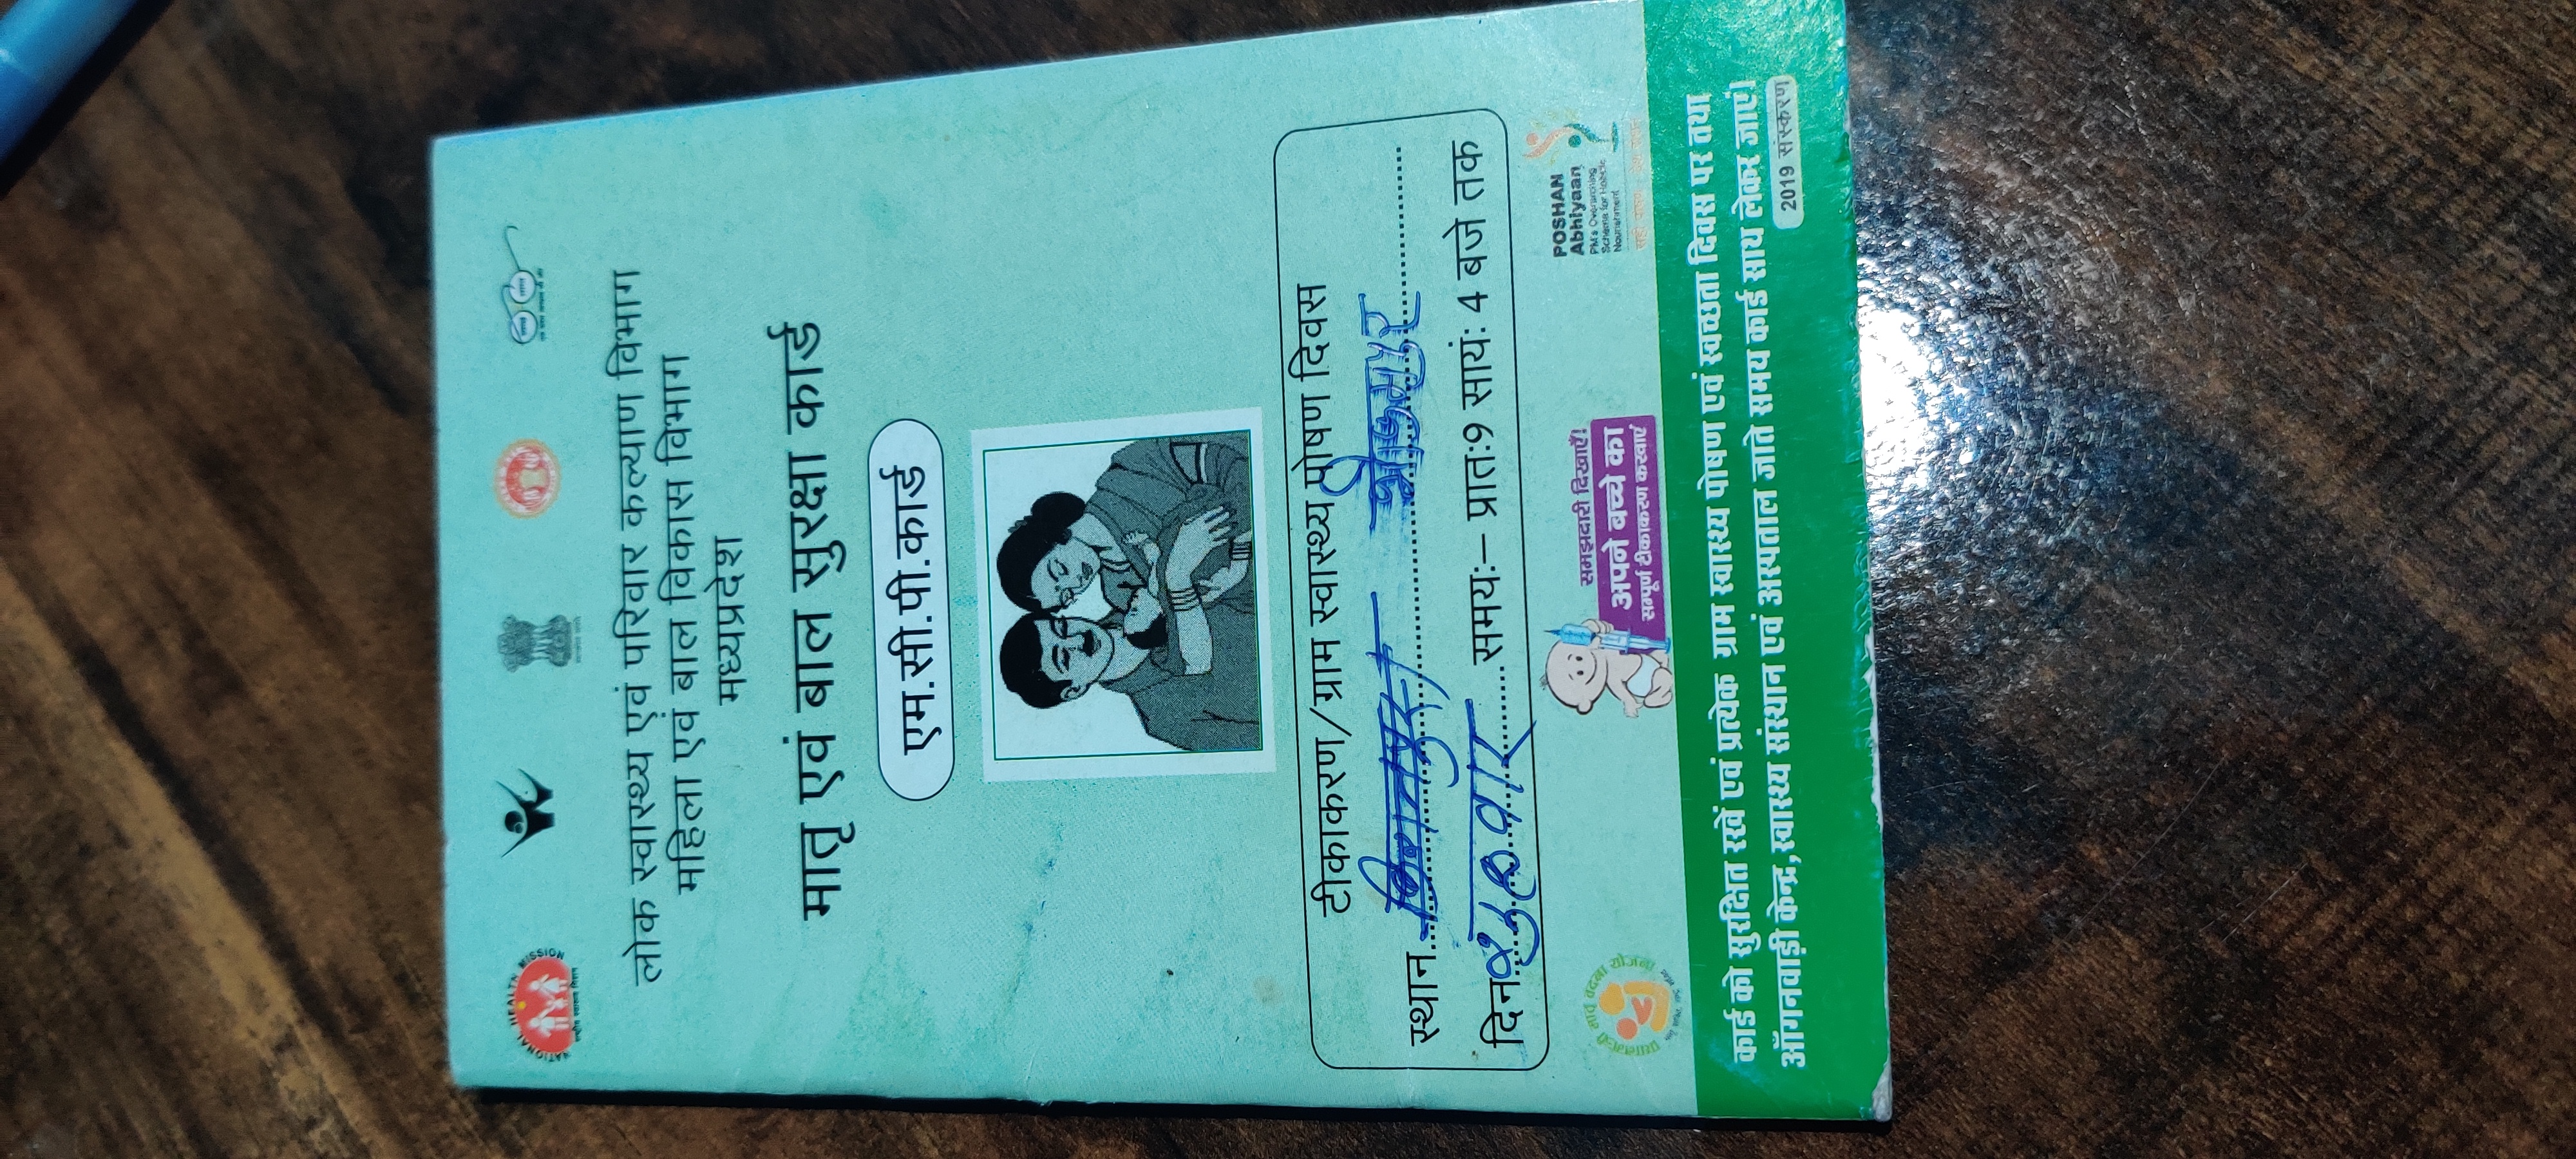 NATIONAL HEALTH MISSION
राष्ट्रीय स्वास्थ्य मिशन
लोक स्वास्थ्य एवं परिवार कल्याण विभाग
महिला एवं बाल विकास विभाग
मध्यप्रदेश
मातृ एवं बाल सुरक्षा कार्ड
एम.सी.पी.कार्ड
टीकाकरण/ग्राम स्वास्थ्य पोषण दिवस
स्थान
दिन शुक्रवार समयः– प्रातः9 सायंः 4 बजे तक
प्रधानमंत्री मातृ वंदना योजना
समझदारी दिखाएँ!
अपने बच्चे का
सम्पूर्ण टीकाकरण करवाएं
POSHAN
Abhiyaan
PM's Overarching
Scheme for Holistic
Nourishment
सही पोषण - देश रोशन
कार्ड को सुरक्षित रखें एवं प्रत्येक ग्राम स्वास्थ्य पोषण एवं स्वच्छता दिवस पर तथा
आँगनवाड़ी केन्द्र,स्वास्थ्य संस्थान एवं अस्पताल जाते समय कार्ड साथ लेकर जाएं।
2019 संस्करण